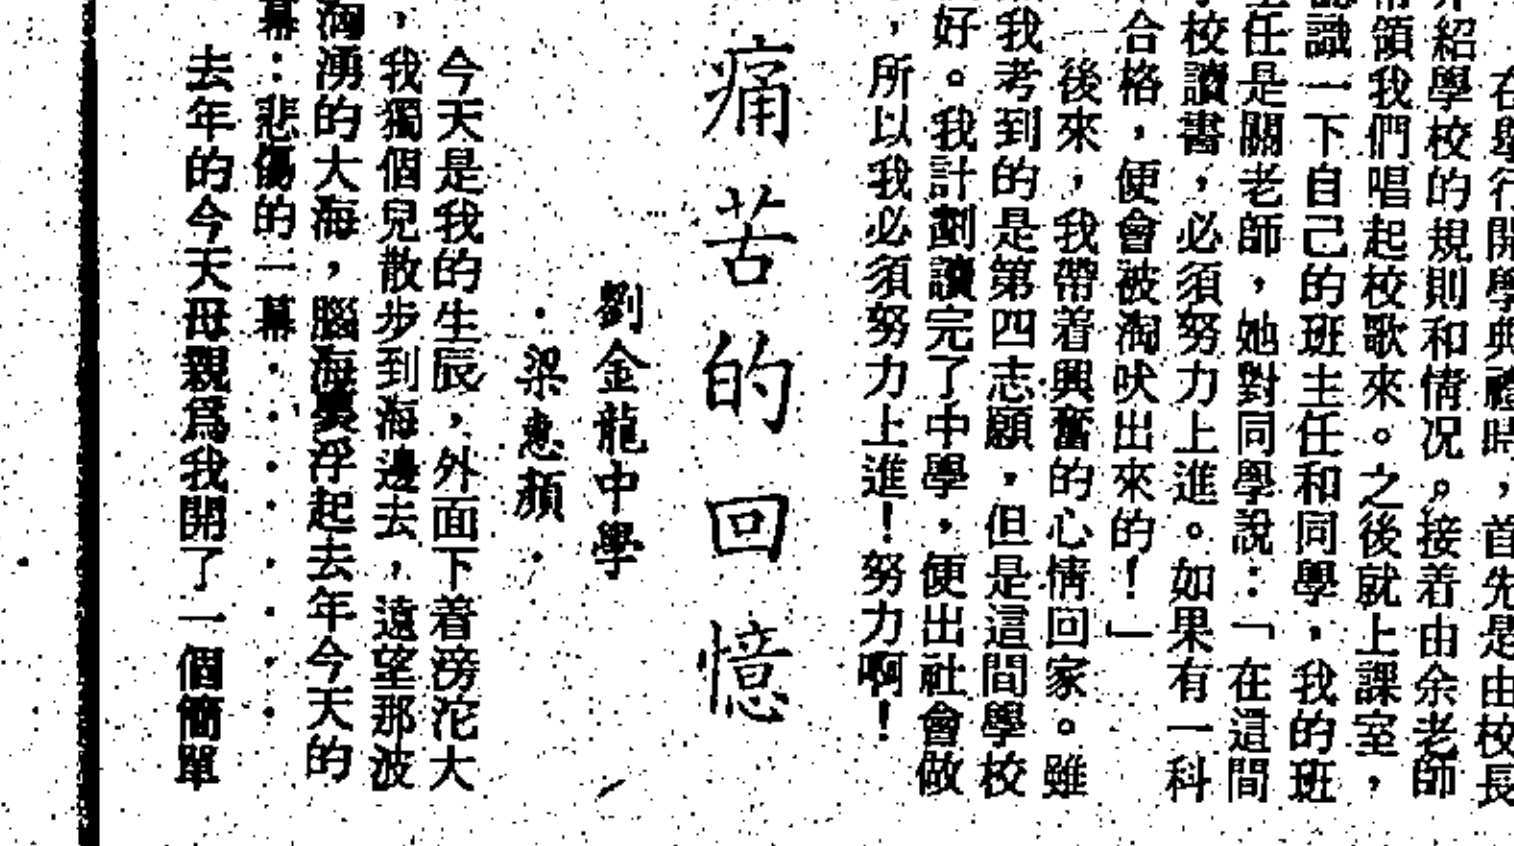 在學行開學典禮時，首先是由校長
介紹學校的規則和情况。接着由余老師
帶領我們唱起校歌來。之後就上課室，
認識一下自己的班主任和同學，我的班
主任是關老師，她對同學說：「在這間
校讀書，必須努力上進。如果有一科
合格，便會被淘吠出來的！」
後來，我帶着興奮的心情回家。雖
我考到的是第四志願，但是這間學校
好。我計劃讀完了中學，便出社會做
，所以我必須努力上進！努力啊！
痛苦的回憶
劉金龍中學
·梁惠顏·
今天是我的生辰，外面下着滂沱大
，我獨個兒散步到海邊去，遠望那波
洶湧的大海，腦海裏浮起去年今天的
幕：悲傷的一幕········
去年的今天母親爲我開了一個簡單